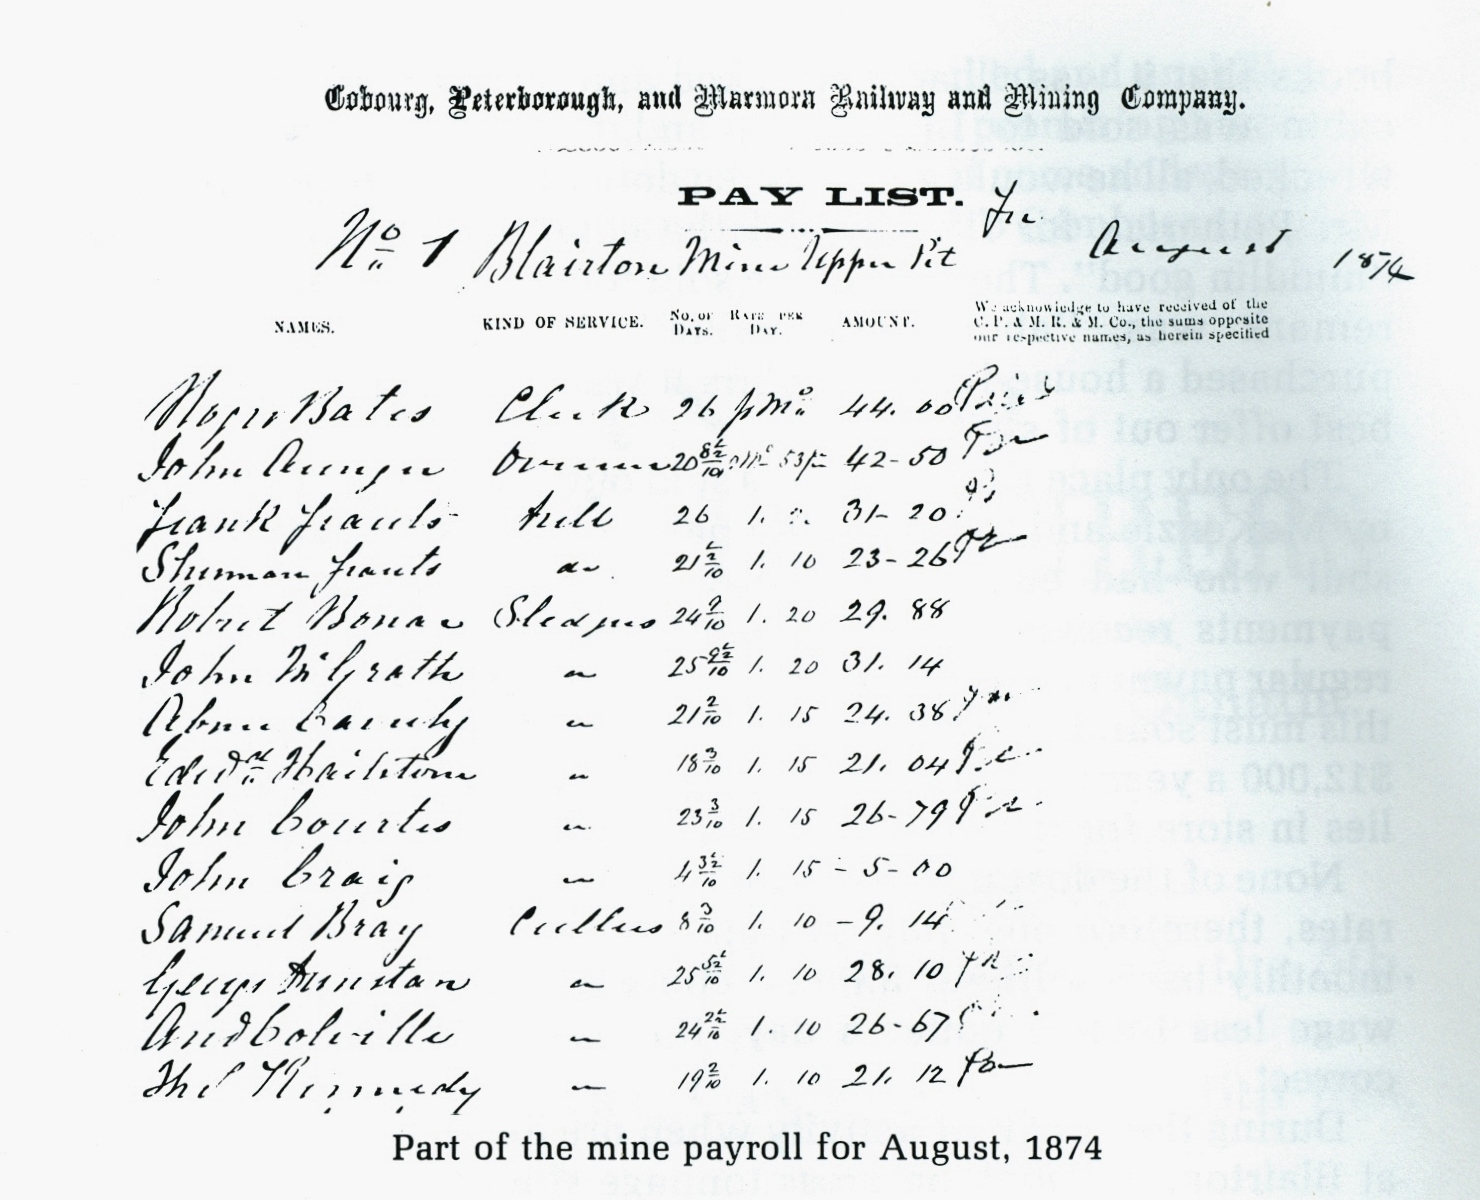 Cobourg, Peterborough, and Marmora Railway and Mining Company.
PAY LIST. For
No 1 Blairton Mine Upper Pit August 1874
NAMES. KIND OF SERVICE. No. OF DAYS. RATE PER DAY. AMOUNT. We acknowledge to have received of the C. P. & M. R. & M. Co., the sums opposite our respective names, as herein specified
Roger Bates Clerk 26 p Mo 44.00
John 20 42-50
Frank Frants 26 1. 31-20
Sherman Frants do 21 1/2/10 1. 10 23-26
Robert Bonar Sledgers 24 9/10 1. 20 29.88
John McGrath " 25 9 1/2/10 1. 20 31.14
Abner " 21 2/10 1. 15 24.38
Edwd Hailstone " 18 3/10 1. 15 21.04
John Courtis " 23 3/10 1. 15 26-79
John Craig " 4 3 1/2/10 1. 15 - 5-00
Samuel Bray Cullers 8 3/10 1. 10 - 9.14
George Dunstan " 25 5 1/2/10 1. 10 28.10
And Colville " 24 2 1/2/10 1. 10 26-67
Thos Kennedy " 19 2/10 1. 10 21.12
Part of the mine payroll for August, 1874